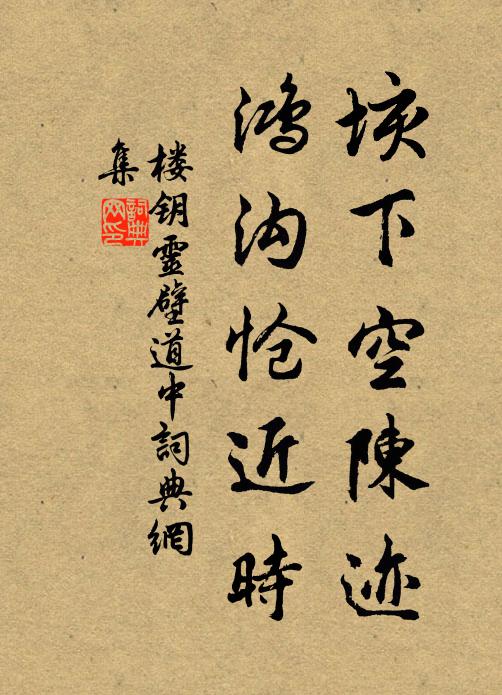 垓下空陳迹
鴻沟怆近時
楼钥靈壁道中詞典網
集
詞典
网印